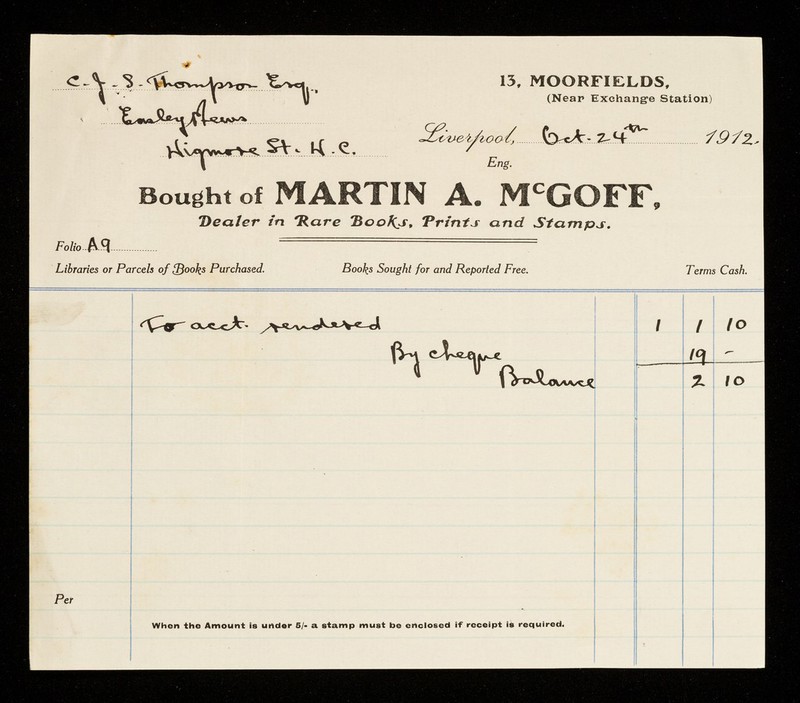 C. J. S. Thompson Esq.,
13, MOORFIELDS,
(Near Exchange Station)
Easley Mews
Liverpool, Oct. 24th 1912.
Wigmore St. W.C.
Eng.
Bought of MARTIN A. McGOFF,
Dealer in Rare Books, Prints and Stamps.
Folio A9
Libraries or Parcels of Books Purchased. Books Sought for and Reported Free. Terms Cash.
To acct. rendered 1 1 10
By cheque 19 -
Balance 2 10
Per
When the Amount is under 5/- a stamp must be enclosed if receipt is required.